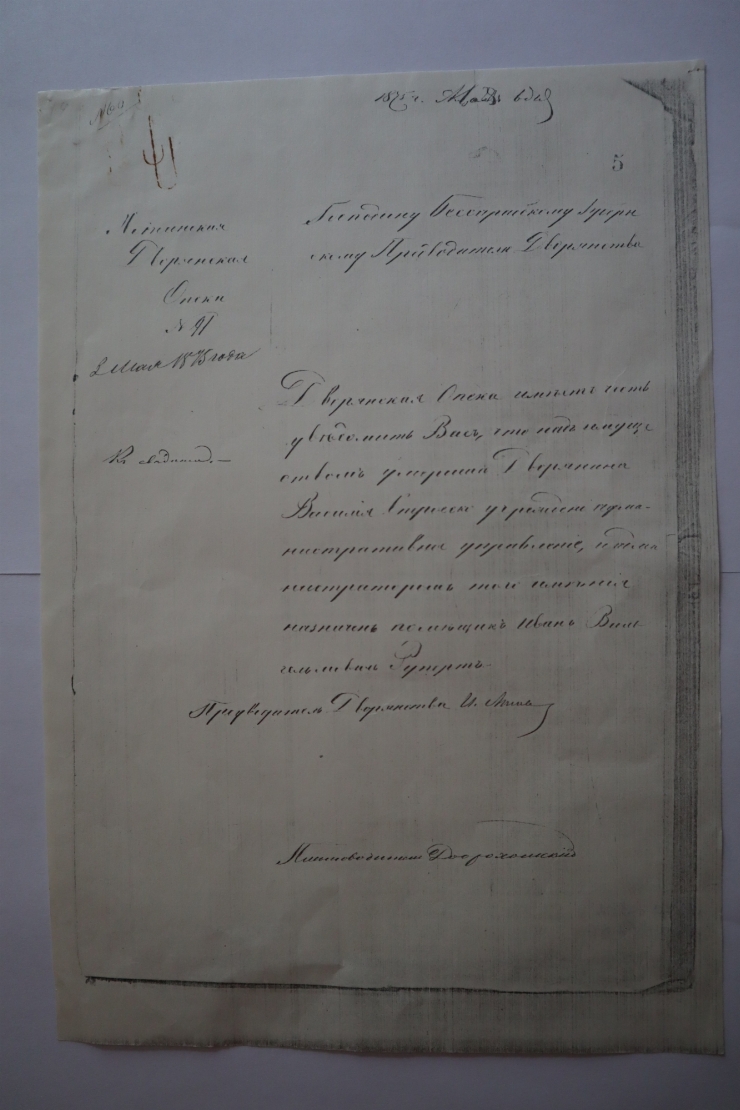 1875 г. Мая 6 дня
5
Хотинская
Дворянская
Опека
№ 91
2 Мая 1875 года
Къ сведению.
Господину Бессарабскому Губерн
скому Предводителю Дворянства
Дворянская Опека имѣетъ честь
увѣдомить Васъ, что надъ имуще
ствомъ умершаго Дворянина
Василія учреждено адми-
нистративное управленіе, и адми
нистраторомъ того имѣнія
назначенъ помѣщикъ Иванъ Виль
гельмовичъ Рупертъ.
Предводитель Дворянства И.